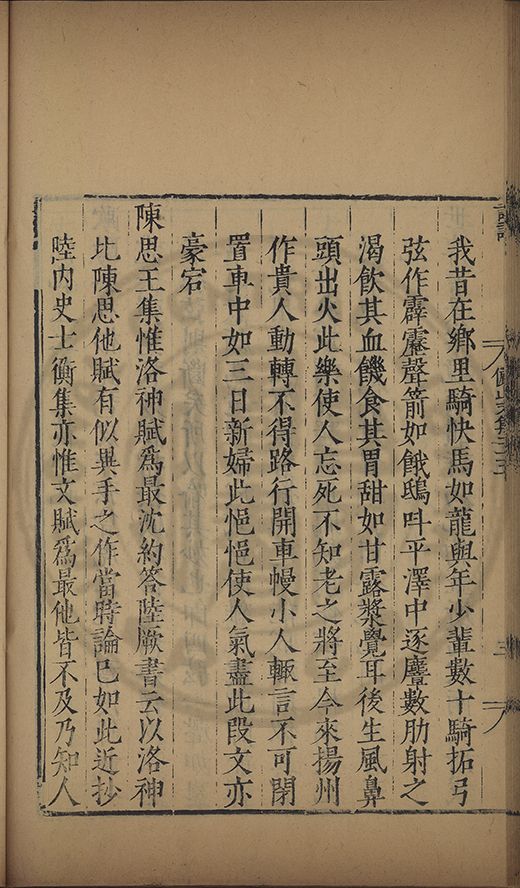 我昔在鄉里騎快馬如龍與年少輩數十騎拓弓
弦作霹靂聲箭如餓鴟呌平澤中逐麞數肋射之
渴飲其血饑食其胃甜如甘露漿覺耳後生風鼻
頭出火此樂使人忘死不知老之將至今來揚州
作貴人動轉不得路行開車幔小人輙言不可閉
置車中如三日新婦此悒悒使人氣盡此段文亦
豪宕
陳思王集惟洛神賦爲最沈約答陸厥書云以洛神
比陳思他賦有似異手之作當時論已如此近抄
陸內史士衡集亦惟文賦爲最他皆不及乃知人